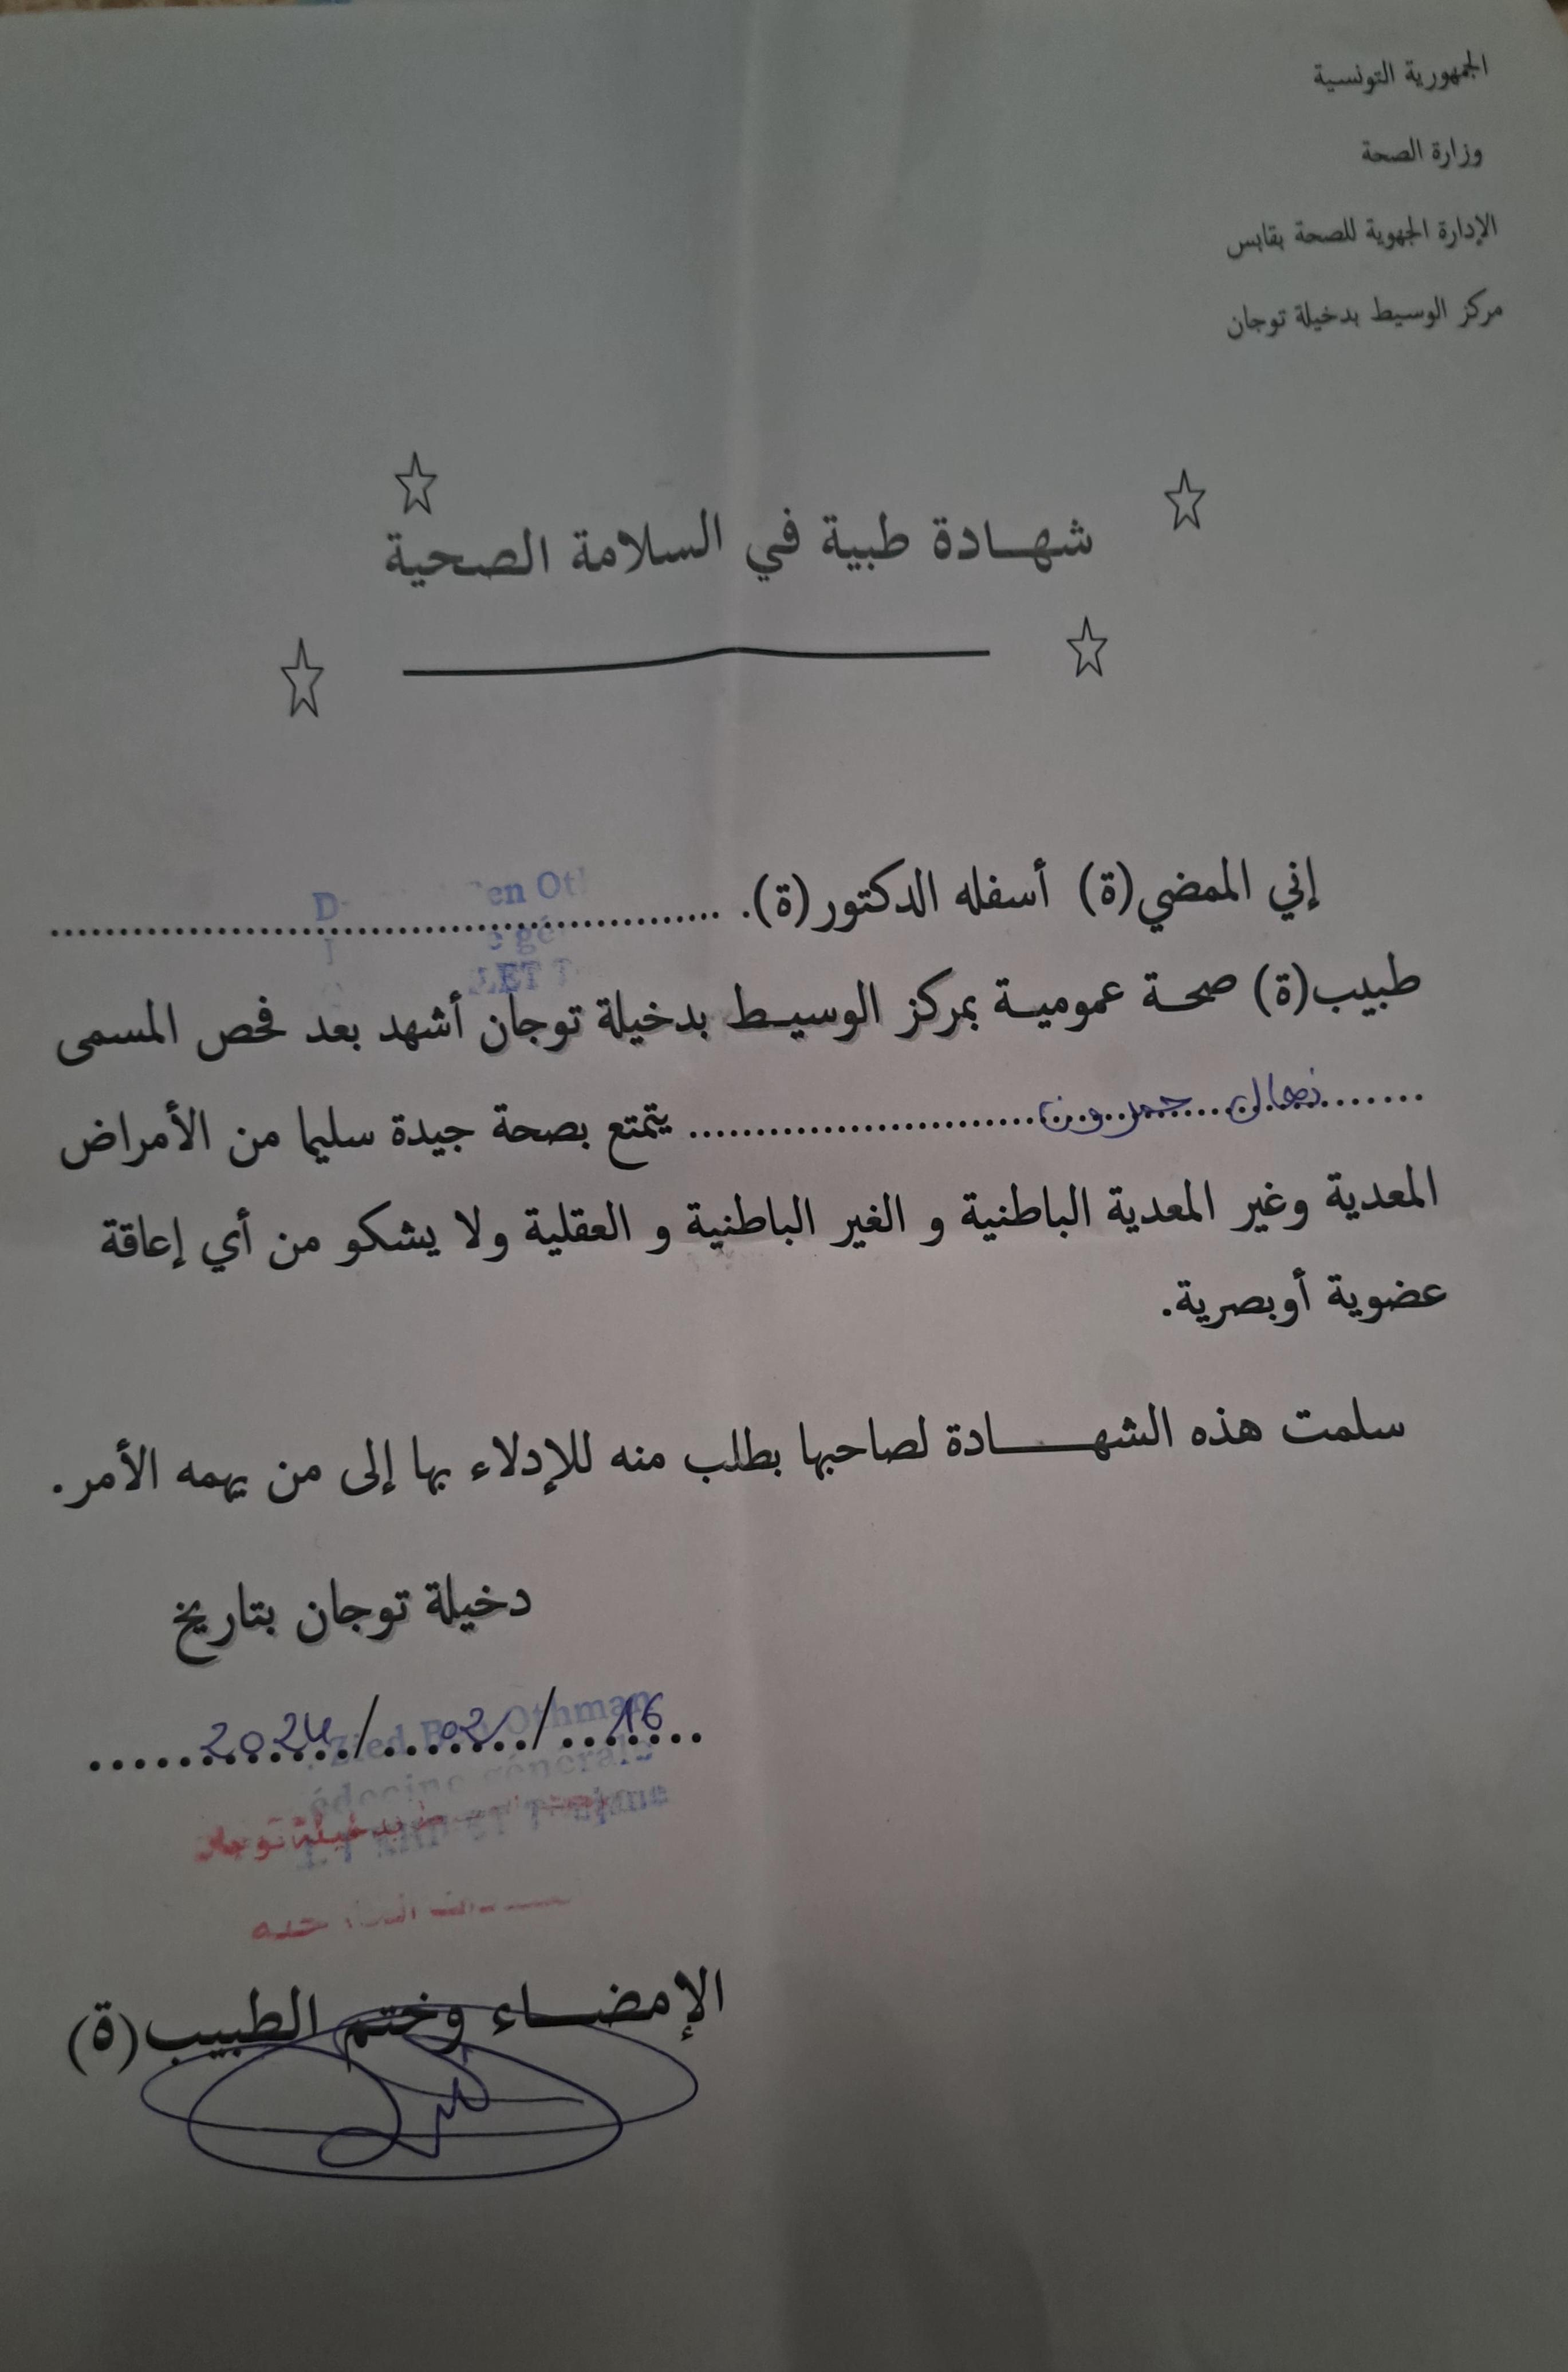 الجمهورية التونسية
وزارة الصحة
الإدارة الجهوية للصحة بقابس
مركز الوسيط بدخيلة توجان
شهـادة طبية في السلامة الصحية
إني الممضي(ة) أسفله الدكتور(ة). ............................................................
en Ot
طبيب(ة) صحة عمومية بمركز الوسيط بدخيلة توجان أشهد بعد فحص المسمى
....... ................................ يتمتع بصحة جيدة سليما من الأمراض
المعدية وغير المعدية الباطنية و الغير الباطنية و العقلية ولا يشكو من أي إعاقة
عضوية أوبصرية.
سلمت هذه الشهـــــادة لصاحبها بطلب منه للإدلاء بها إلى من يهمه الأمر.
دخيلة توجان بتاريخ
16/02/2024
Zied Ben Othman
générale
بدخيلة توجان
الإمضـــاء وختم الطبيب(ة)